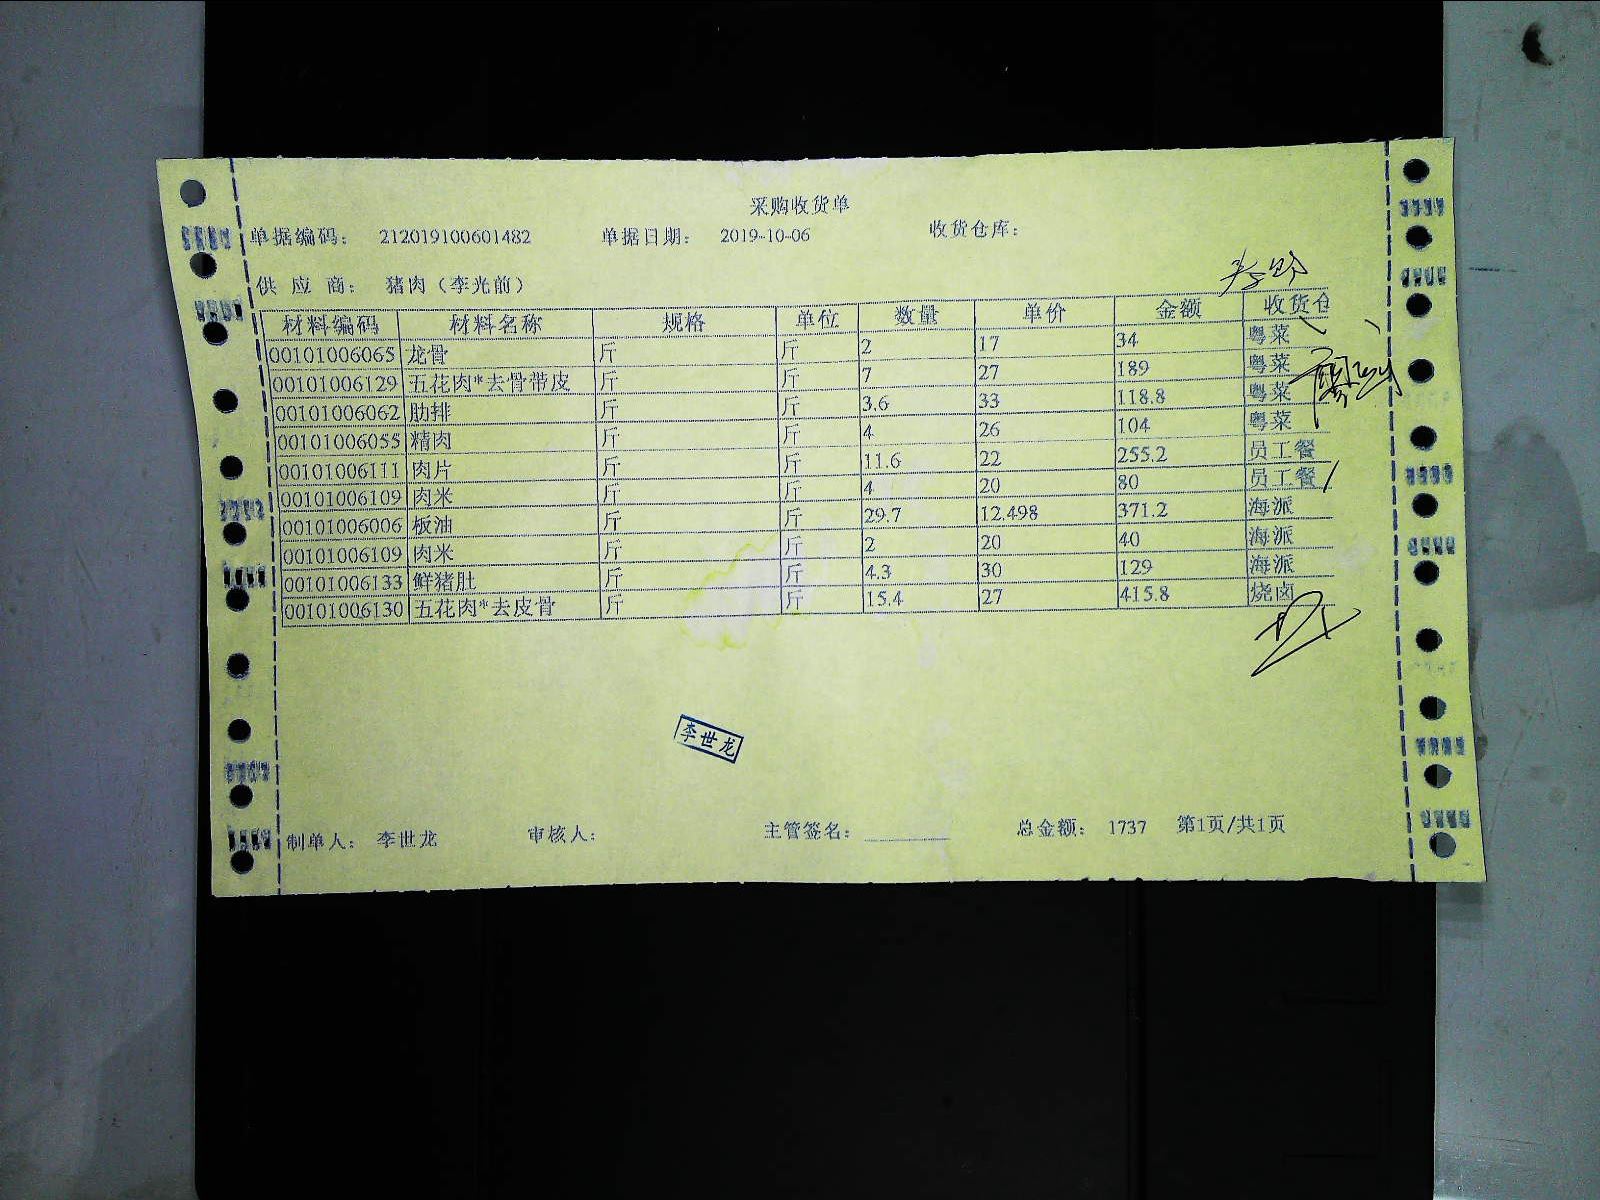 采购收货单
单据编码： 212019100601482 单据日期： 2019-10-06 收货仓库：
供 应 商： 猪肉（李光前）
材料编码 材料名称 规格 单位 数量 单价 金额 收货仓
00101006065 龙骨 斤 斤 2 17 34 粤菜
00101006129 五花肉*去骨带皮 斤 斤 7 27 189 粤菜
00101006062 肋排 斤 斤 3.6 33 118.8 粤菜
00101006055 精肉 斤 斤 4 26 104 粤菜
00101006111 肉片 斤 斤 11.6 22 255.2 员工餐
00101006109 肉米 斤 斤 4 20 80 员工餐
00101006006 板油 斤 斤 29.7 12.498 371.2 海派
00101006109 肉米 斤 斤 2 20 40 海派
00101006133 鲜猪肚 斤 斤 4.3 30 129 海派
00101006130 五花肉*去皮骨 斤 斤 15.4 27 415.8 烧卤
李世龙
制单人： 李世龙 审核人： 主管签名： 总金额： 1737 第1页/共1页